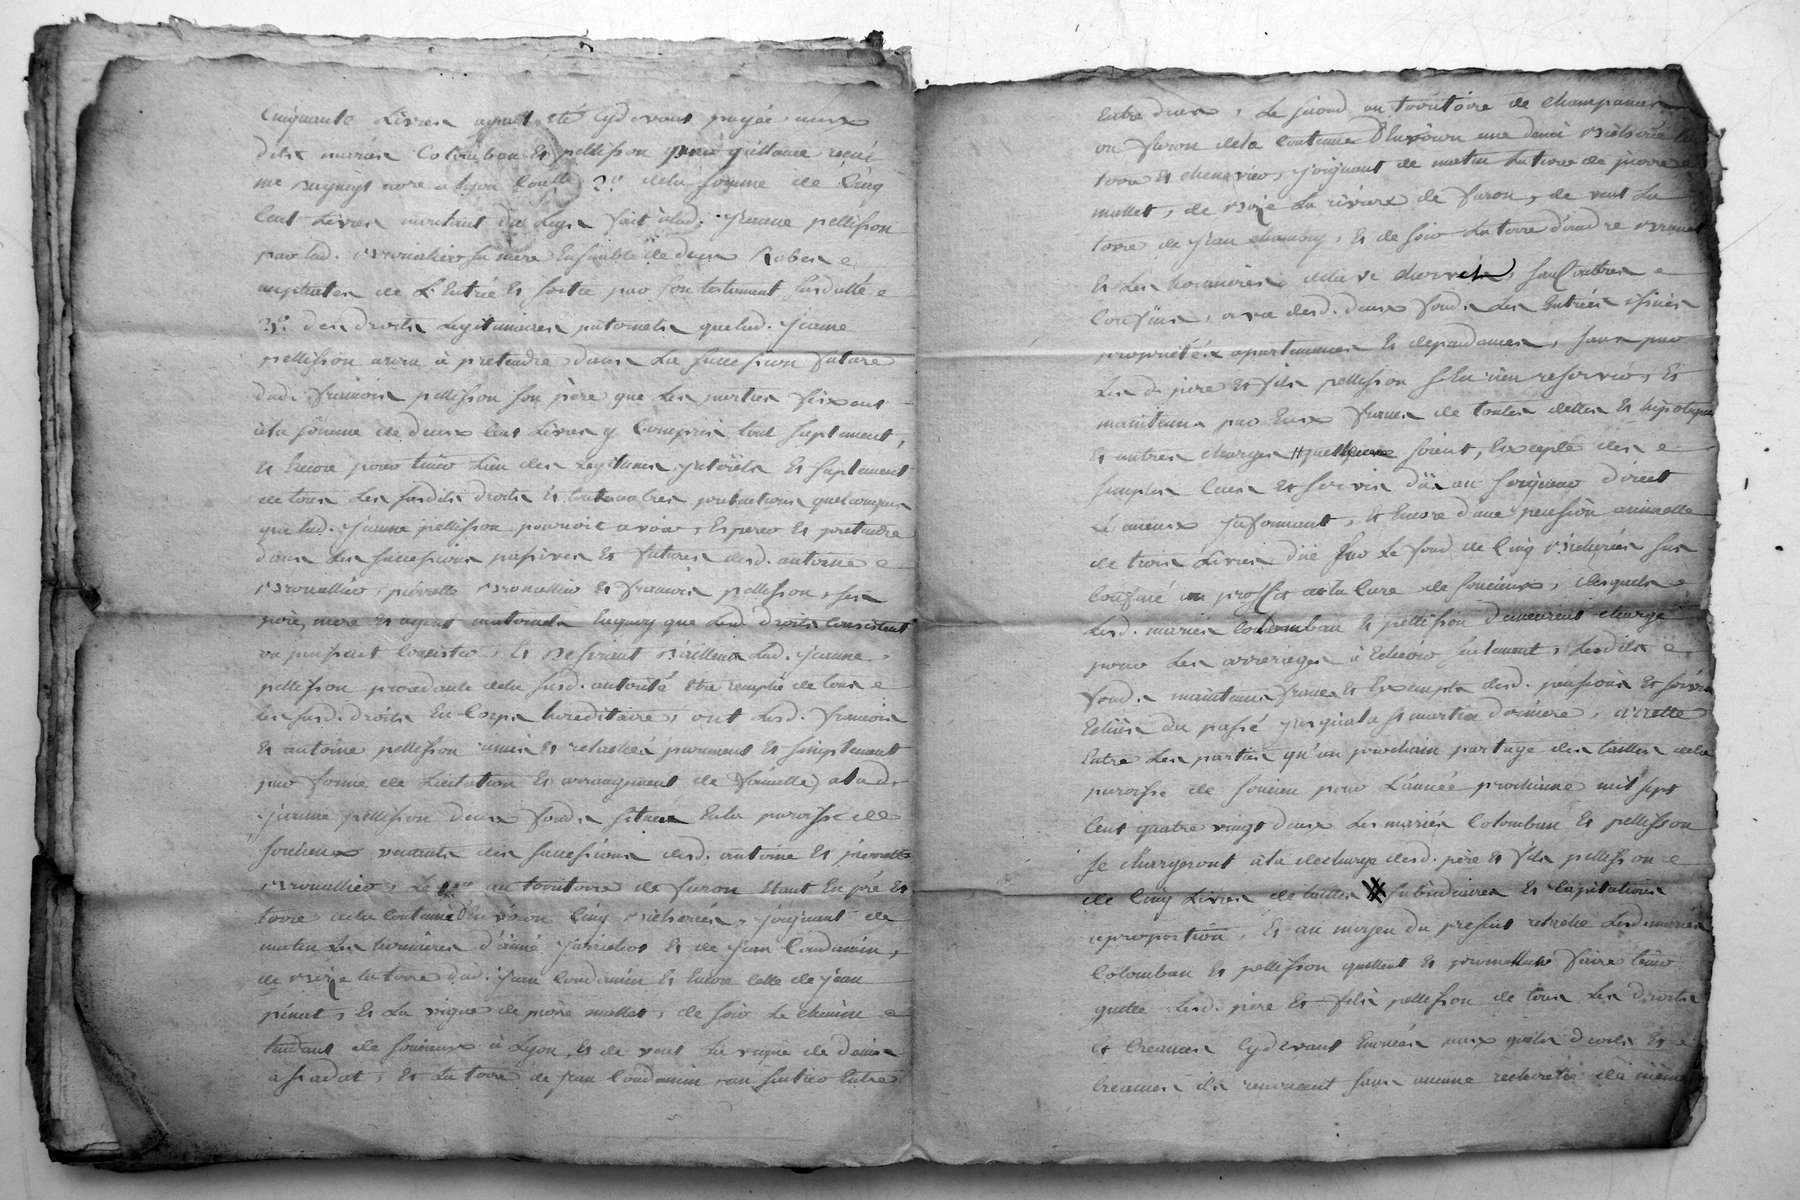 Cinquante Livres ayant été cydevant payée aux
dits mariés Colomban et pellisson quittance reçüe
me notre a Lyon 2° de la somme de Cinq
Cent Livres montant du Legs fait alad. Jeanne pellisson
par lad. sa mere Ensemble de deux Robes
de L'Entrée et sortie par son testament susdatté
3° des droits Legitimaires paternels que lad. Jeanne
pellisson aura à pretendre dans La succession future
dud. francois pellisson son père que Les parties fixent
à la somme de deux Cent Livres y Compris tout suplement,
et Encore pour tenir Lieu des Legitimes, interêts et suplement
de tous Les susdits droits et toutes autres pretentions quelconques
que lad. Jeanne pellisson pourroit avoir, Esperer et pretendre
dans Les successions passives et futures desd. antoine
pierrette et francois pellisson, ses
père, mere et ayeul maternel En quoy que Lesd. droits Consistent
ou puissent Consister, Et Desirant D'ailleurs Lad. Jeanne
pellisson procedante de la susd. autorité être remplie de tous
Les susd. droits En Corps hereditaire, ont Lesd. francois
et antoine pellisson remis et relachés purement et simplement
par forme de Licitation et arrangement de famille, alad.
Jeanne pellisson deux fonds situés En la paroisse de
soucieux venants des successions desd. antoine et pierrette
Le 1er au territoire de furon Etant En pré et
terre de la Contenue D'Environ Cinq bicherées, joignant de
matin Les hermieres d'aimé et de Jean Condamin,
de bize la terre dud. Jean Condamin et Encore Celle de Jean
pinat, et La vigne de pierre mallet, de soir Le chemin
tendant de soucieux à Lyon, et de vent La vigne de denis
et La terre de Jean Condamin, un sentier Entre
Entre deux, Le second au territoire de champanier
ou furon de la Contenue D'Environ une demi bicherée
terre et chenevier, joignant de matin La terre de pierre
mallet, de bize La riviere de furon, de vent La
terre de Jean et de soir La terre d'andré
et Les de la ve sauf autres
Confins, avec desd. deux fonds Les Entrées issües
proprietés apartenances et dependances, sans par
Les d. père et fils pellisson s'En rien reserver, et
maintenus par Eux francs de toutes dettes et hipoteques
et autres charges quelconques soient, Excepté des
simples Cens et servis dûs au seigneur direct
Le mieux Informant, Et Encore d'une pension annuelle
de trois Livres düe sur Le fond de Cinq bicherées sus
Confiné au proffit de la Cure de soucieux, desquels
Lesd. mariés Colomban et pellisson demeurent chargé
pour Les arrerages à Echeoir seulement, Lesdits
fonds maintenus francs et Exempts desd. pensions et servis
Echües du passé jusqu'à la st martin derniere, arretté
Entre Les parties qu'au prochain partage des tailles de la
paroisse de soucieu pour L'année prochaine mil sept
Cent quatre vingt deux Les mariés Colomban et pellisson
se chargeront à la decharge desd. père et fils pellisson
de Cinq Livres de tailles subsidiaires et Capitations
aproportion, Et au moyen du present relache Lesd. mariés
Colomban et pellisson quittent et promettent faire tenir
quitte Lesd. père et fils pellisson de tous Les droits
et Creances Cydevant Enoncés, aux quels droits et
Creances ils renoncent sans aucune recherche de même